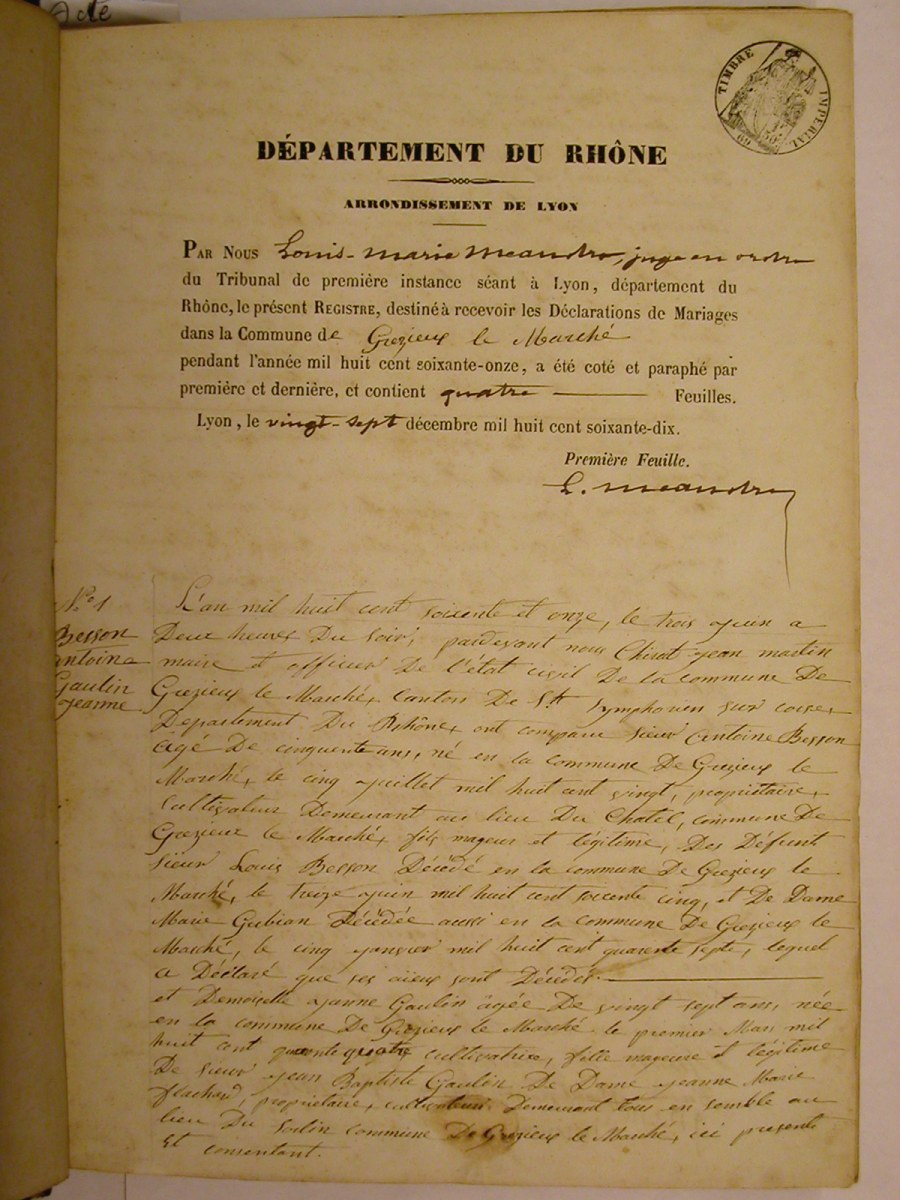 Acte
TIMBRE IMPERIAL
69
50c
DÉPARTEMENT DU RHÔNE
ARRONDISSEMENT DE LYON
PAR NOUS Louis-Marie Meandre, juge en ordre
du Tribunal de première instance séant à Lyon, département du
Rhône, le présent REGISTRE, destiné à recevoir les Déclarations de Mariages
dans la Commune de Grezieux le Marché
pendant l'année mil huit cent soixante-onze, a été coté et paraphé par
première et dernière, et contient quatre Feuilles.
Lyon, le vingt-sept décembre mil huit cent soixante-dix.
Première Feuille.
L. Meandre
N° 1
Besson
antoine
Gaulin
jeanne
L'an mil huit cent soixante et onze, le trois juin a
Deux heures Du soir, pardevant nous Chirat jean martin
maire et officier De l'état civil De la commune De
Grezieux le Marché, Canton De St. Symphorien sur coise,
Departement Du Rhône, ont comparu sieur Antoine Besson
âgé De cinquante ans, né en la commune De Grezieux le
Marché, le cinq juillet mil huit cent vingt, propriétaire,
Cultivateur Demeurant au lieu Du Chatel, commune De
Grezieux le Marché, fils majeur et légitime, Des Défunt
sieur Louis Besson Décédé en la commune De Grezieux le
Marché, le treize juin mil huit cent soixante cinq, et De Dame
Marie Gubian Décédée aussi en la commune De Grezieux le
Marché, le cinq janvier mil huit cent quarante sept, lequel
a Déclaré que ses aïeux sont Décédés.
et Demoiselle jeanne Gaulin âgée De vingt sept ans, née
en la commune De Grezieux le Marché le premier Mars mil
huit cent quarante quatre cultivatrice, fille majeure et légitime
De sieur jean Baptiste Gaulin De Dame jeanne Marie
flachard, propriétaire, cultivateurs Demeurant tous en semble au
lieu Du commune De Grezieux le Marché, ici présents
Et consentant.